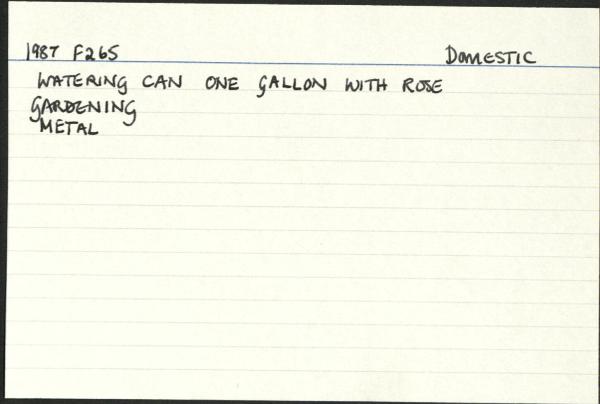 1987 F265 DOMESTIC
WATERING CAN ONE GALLON WITH ROSE
GARDENING
METAL